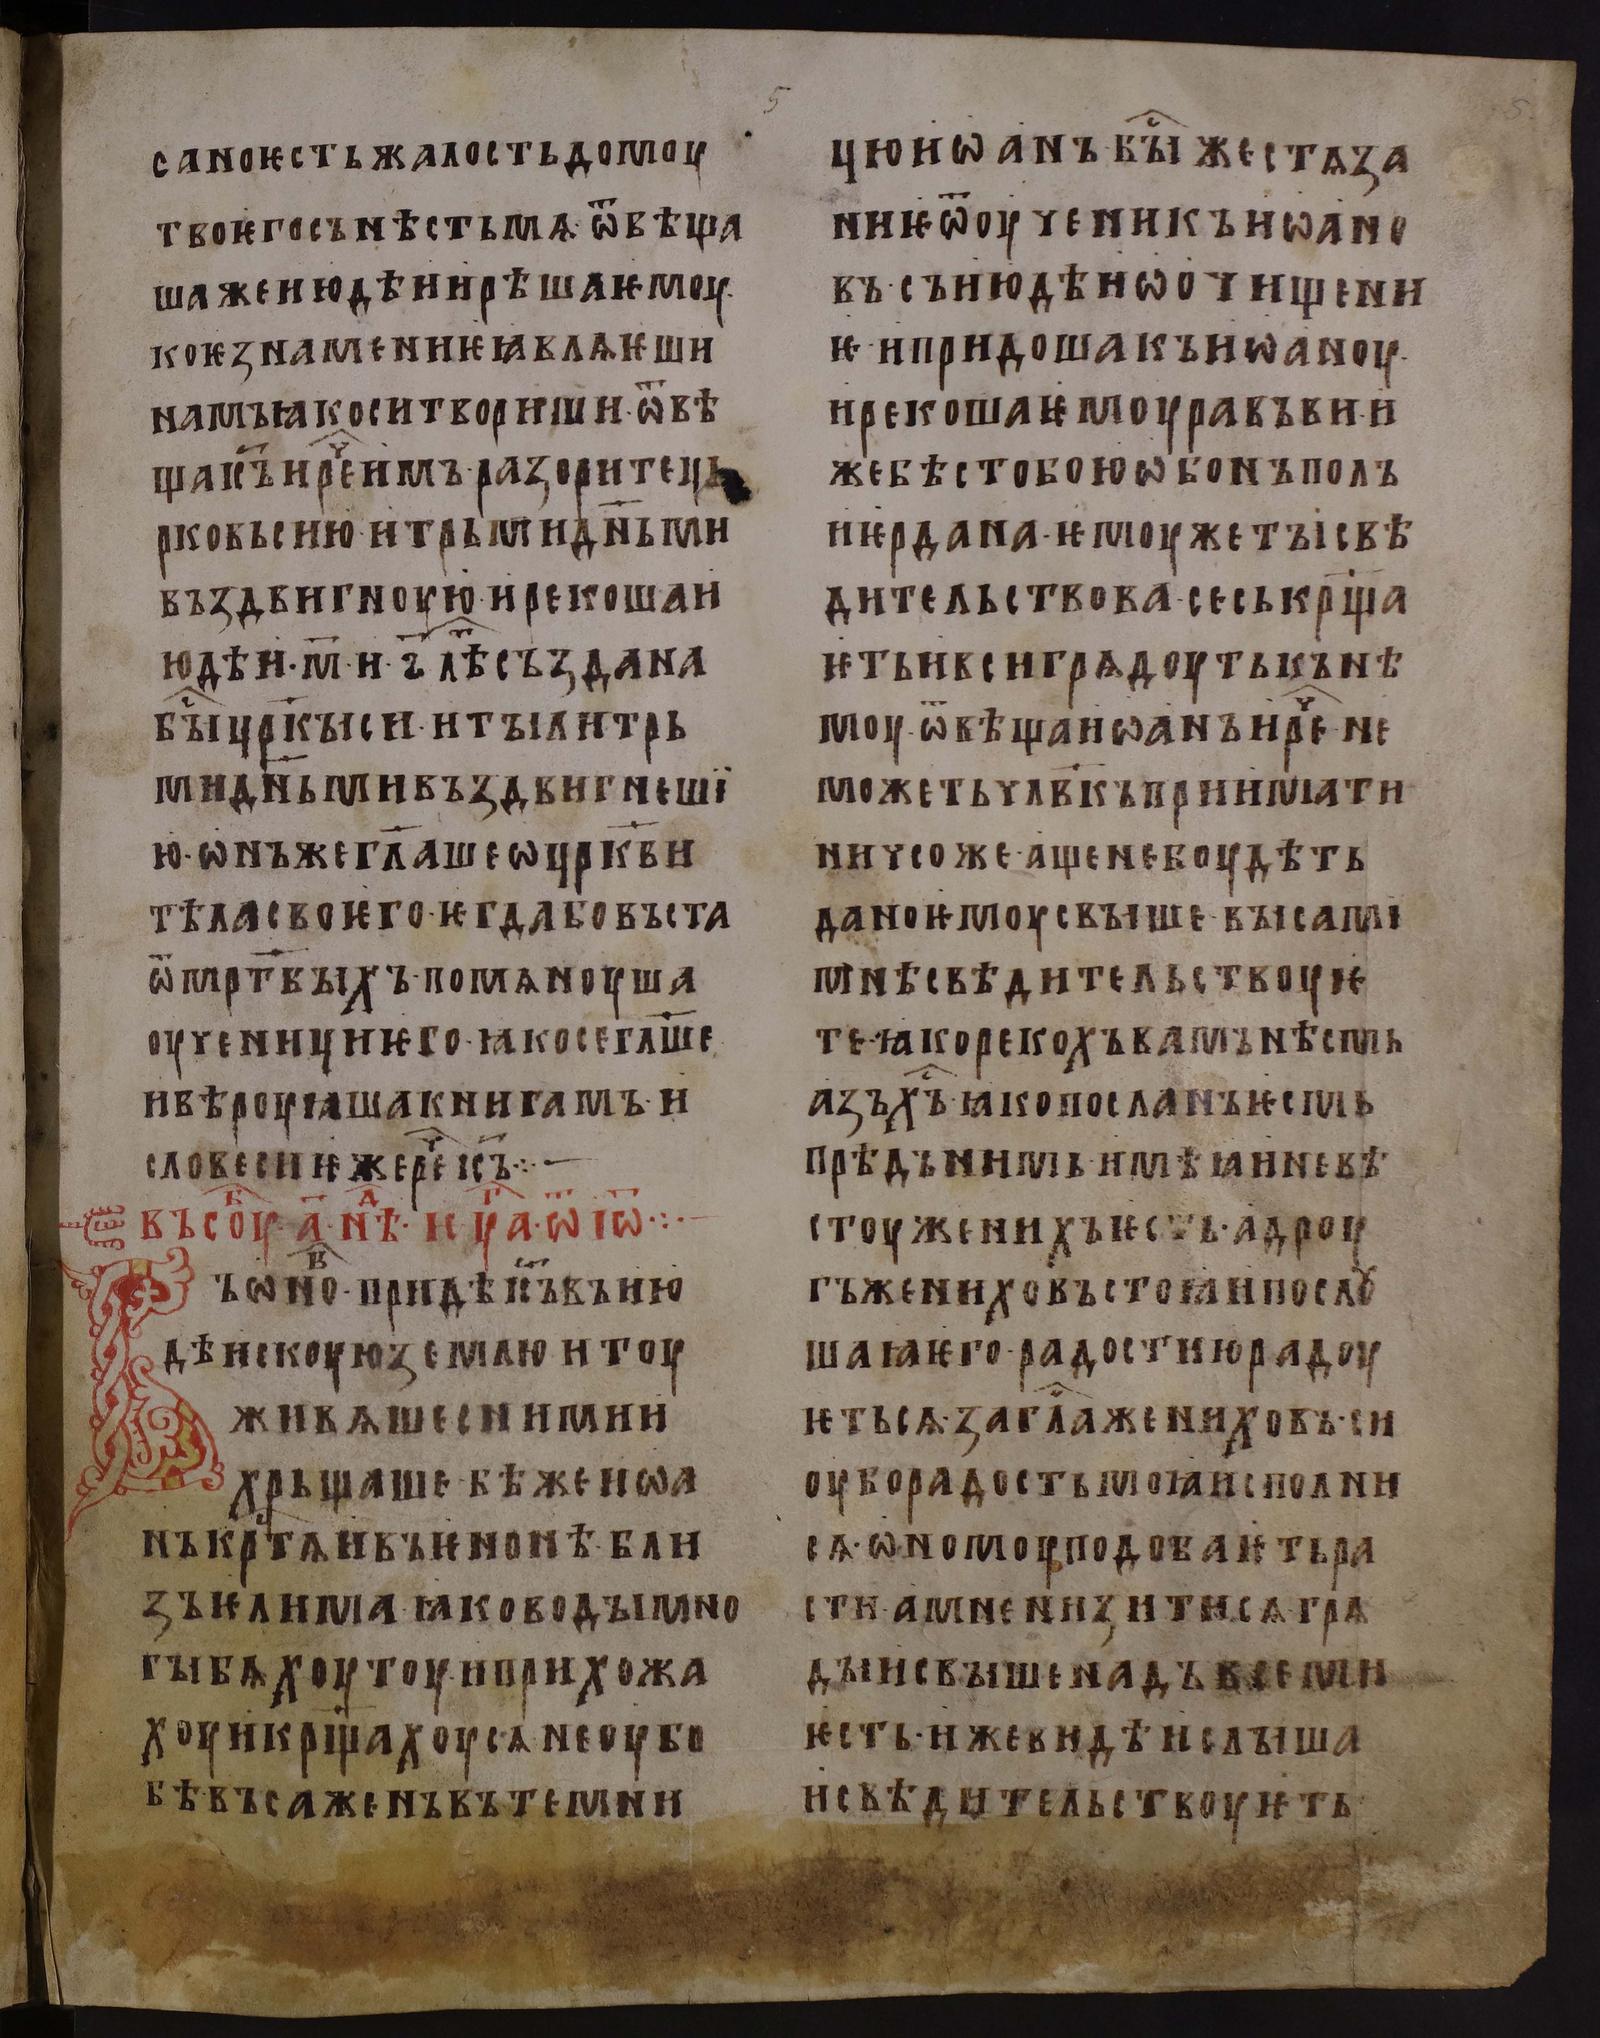 5
5.
саноѥстьжалостьдомоу
твоѥгосънѣстьмѧ·ѿвѣща
шажеиюдѣиирѣшаѥмоу·
коѥзнамениѥꙗвлѧѥши
намъꙗкоситвориши·ѿвѣ
щаі҃съире҇имъ·разоритець
рковьсию·итрьмидн҃ьми
въздвигноую·ирекошаи
юдѣи·м҃·и·ѕ҃·лѣ҇създана
бы҇црк҃ысиі·итылитрь
мидн҃ьмивъздвигнешї
ю·ѡнъжегл҃ашеѡцрк҃ви
тѣласвоѥго·ѥгдабовъста
ѿмрт҃выхъ·помѧноуша
оученициѥго·ꙗкосегл҃аше
ивѣроуꙗшакнигамъ·и
словесииѥжерече҇і҃съ·:·—
въсоу҇·а҃·нд҇ѣ·ѥу҇а·ѿіѡ҇·:·—
Въѡно·придеі҃съвъию
дѣискоуюземлю·итоу
живѧшеснимии
хрьщаше·бѣжеиѡа
нъкртѧивъѥнонѣ·бли
зъѥлима·ꙗководымно
гыбѧхоутоу·иприхожа
хоуикрщ҃ахоусѧнеоубо
бѣвъсаженъвътемни
цюиѡанъ·бы҇жестѧза
ниѥѿоученикъиѡано
въ·съиюдѣиѡочищени
ѥ·ипридошакъиѡаноу·
ирекошаѥмоуравъви·и
жебѣстобоюѡбонъполъ
иѥрдана·ѥмоужетысвѣ
дительствова·сеськрщ҃а
ѥтьивсигрѧдоутькънѣ
моу·ѿвѣщаиѡанъире҇·не
можетьчл҃вкъприимати
ничсоже·ащенебоудѣть
даноѥмоусвыше·высамі
мнѣсвѣдительствоуѥ
те·ꙗкорекохъвамънѣсмь
азъх҇ъ·ꙗкопосланъѥсмь
прѣдънимь·имѣꙗиневѣ
стоуженихъѥсть·адроу
гъжениховъстоꙗипослꙋ
шаꙗѥго·радостиюрадоу
ѥтьсѧ·загл҃аженихов·си
оуборадостьмоꙗисполни
сѧ·ѡномоуподобаѥтьра
сти·амнеиизитисѧ·грѧ
дыисвышенадъвсеми
ѥсть·ижевидѣислыша
исвѣдительствоуѥть